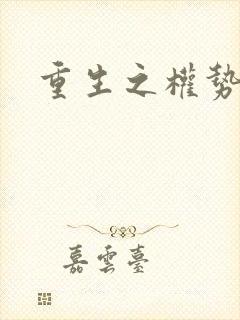 重生之權勢
嘉雲臺